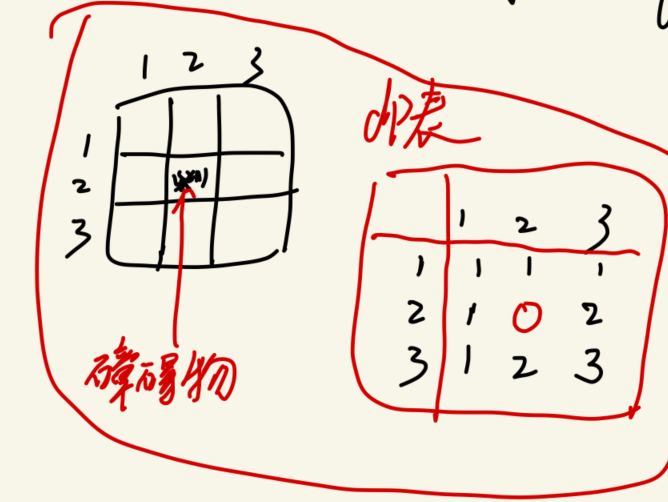 1 2 3
1
2
3
障碍物
dp表
1 2 3
1 1 1 1
2 1 0 2
3 1 2 3